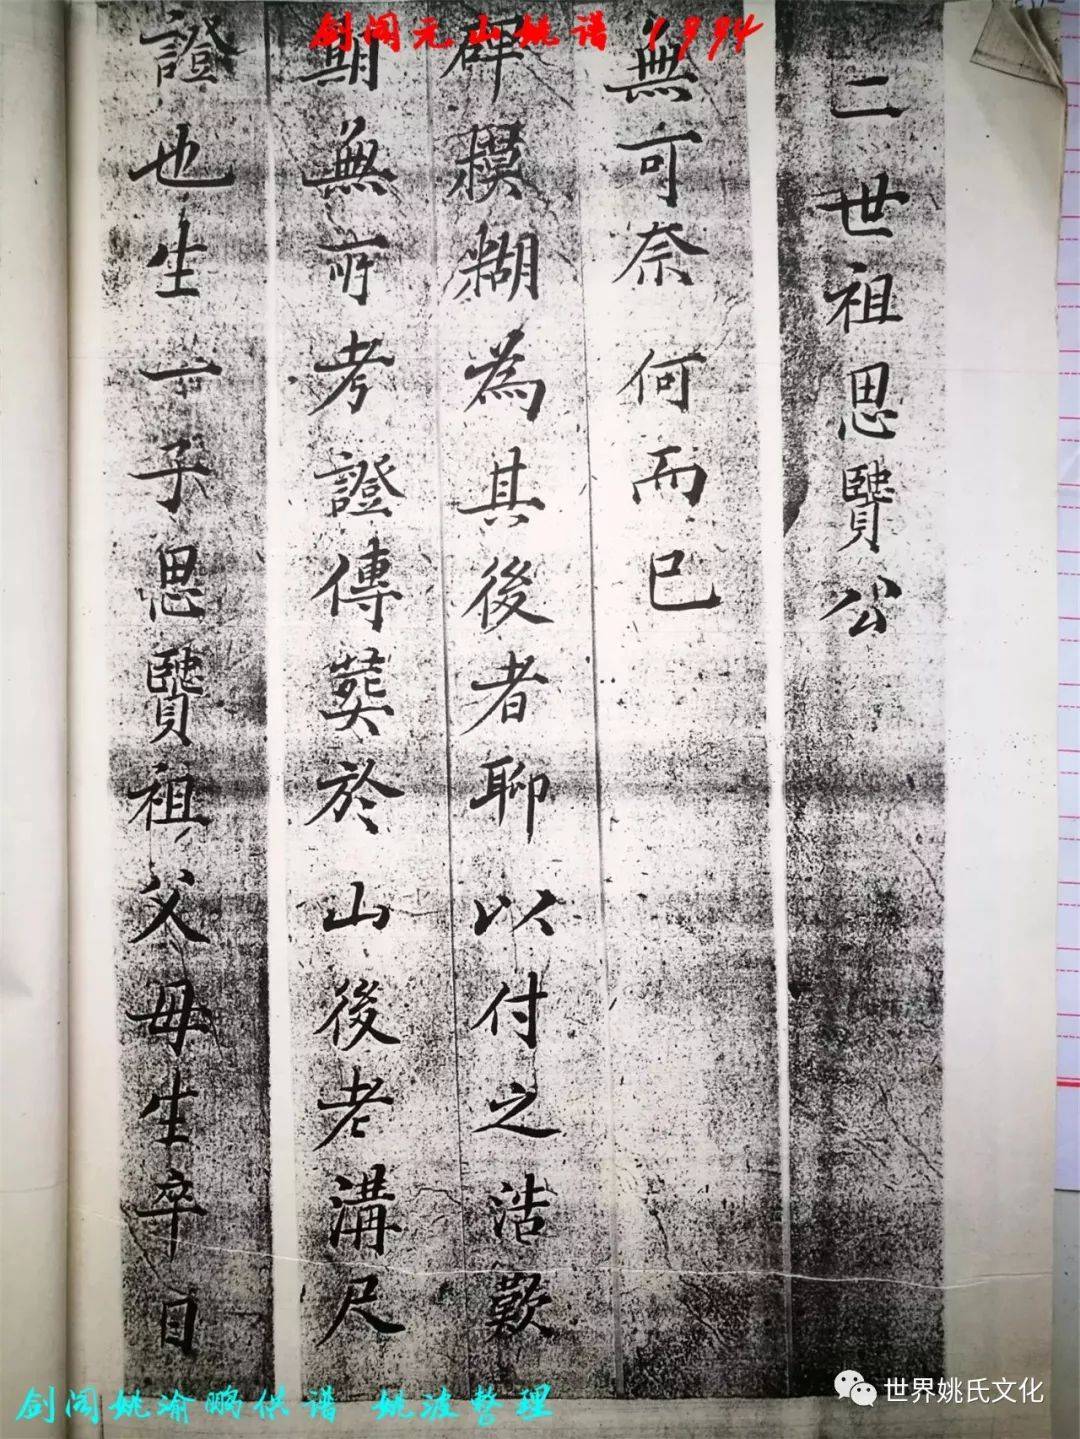 剑阁元山姚谱 1994
證也生一子思贒祖父母生卒日
期無所考證傳葬於山後老溝尺
碑糢糊為其後者聊以付之浩歎
無可奈何而已
二世祖思贒公
剑阁姚渝鹏供谱 姚波整理
世界姚氏文化